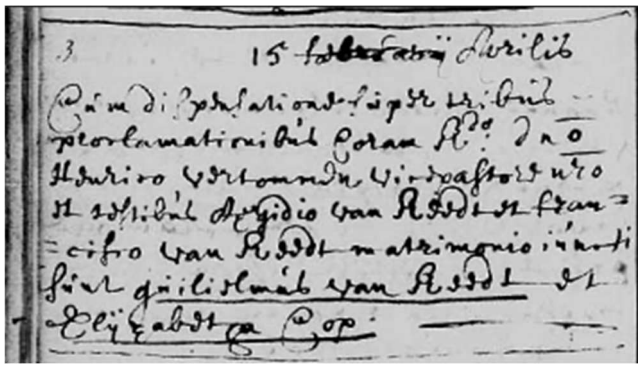 3 15 februarij Aprilis
Cúm dispensatione súper tribús
proclamationibús Coram Rdo. dno
Henrico vertommen vicepastore nro
et testibús Aegidio van Reedt et fran=
=cisco van Reedt matrimonio iúncti
súnt gúilielmús van Reedt et
Elÿzabetha Cop